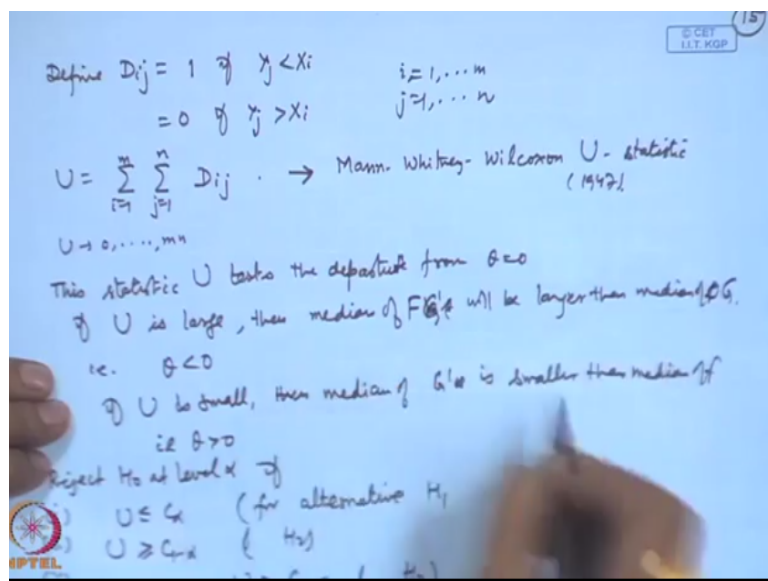 15
© CET
I.I.T. KGP
Define Dij = 1 if Yj < Xi i=1,...m
= 0 if Yj > Xi j=1,... n
U = ∑_{i=1}^{m} ∑_{j=1}^{n} Dij . → Mann-Whitney-Wilcoxon U-statistic
(1947).
U → 0,....,mn
This statistic U tests the departure from θ=0
If U is large, then median of F will be larger than median of G.
ie. θ<0
If U is small, then median of G's is smaller than median of F
ie θ>0
Reject H0 at level α if
U ≤ Cα (for alternative H1
U ≥ C1-α ( H2)
NPTEL